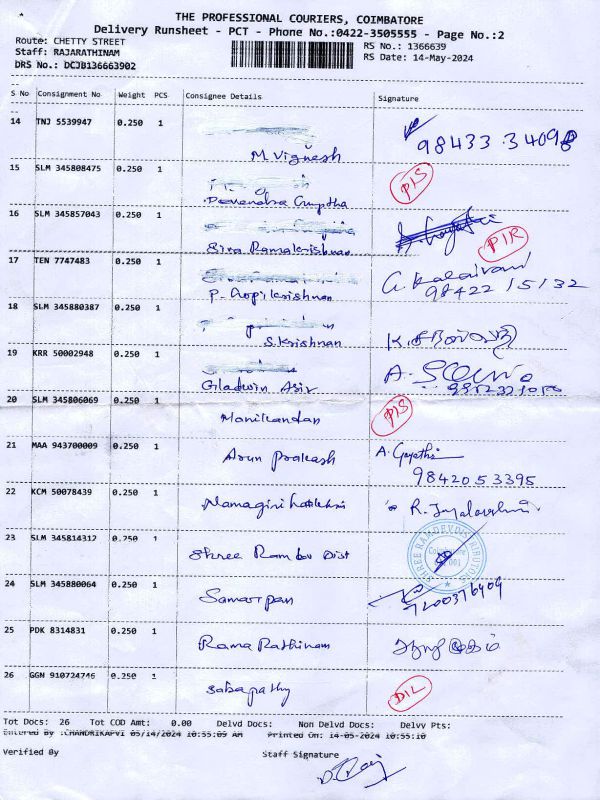 THE PROFESSIONAL COURIERS, COIMBATORE
Delivery Runsheet - PCT - Phone No.:0422-3505555 - Page No.:2
Route: CHETTY STREET
RS No.: 1366639
Staff: RAJARATHINAM
RS Date: 14-May-2024
DRS No.: DCJB136663902
S No Consignment No Weight PCS Consignee Details Signature
14 TNJ 5539947 0.250 1
M. Vignesh 98433 34098
15 SLM 345808475 0.250 1
Devendra Guptha PIS
16 SLM 345857043 0.250 1
Siva Ramakrishnan PIR
17 TEN 7747483 0.250 1
P. Gopikrishnan 98422 15132
18 SLM 345880387 0.250 1
S. Krishnan
19 KRR 50002948 0.250 1
Gladwin Asir A.
20 SLM 345806069 0.250 1
Manikandan PIS
21 MAA 943700009 0.250 1
Arun Prakash A. Gayathri
9842053395
22 KCM 50078439 0.250 1
Namagiri R. Jayalakshmi
23 SLM 345814312 0.250 1
Shree Ramdev Dist
SHREE RAMDEV DISTRIBUTORS
24 SLM 345880064 0.250 1
Samarpan 7200376909
25 PDK 8314831 0.250 1
Rama Rathinam
26 GGN 910724746 0.250 1
Sabapathy D/L
Tot Docs: 26 Tot COD Amt: 0.00 Delvd Docs: Non Delvd Docs: Delvy Pts:
Entered By :CHANDRIKAPVI 05/14/2024 10:55:09 AM Printed On: 14-05-2024 10:55:10
Verified By Staff Signature